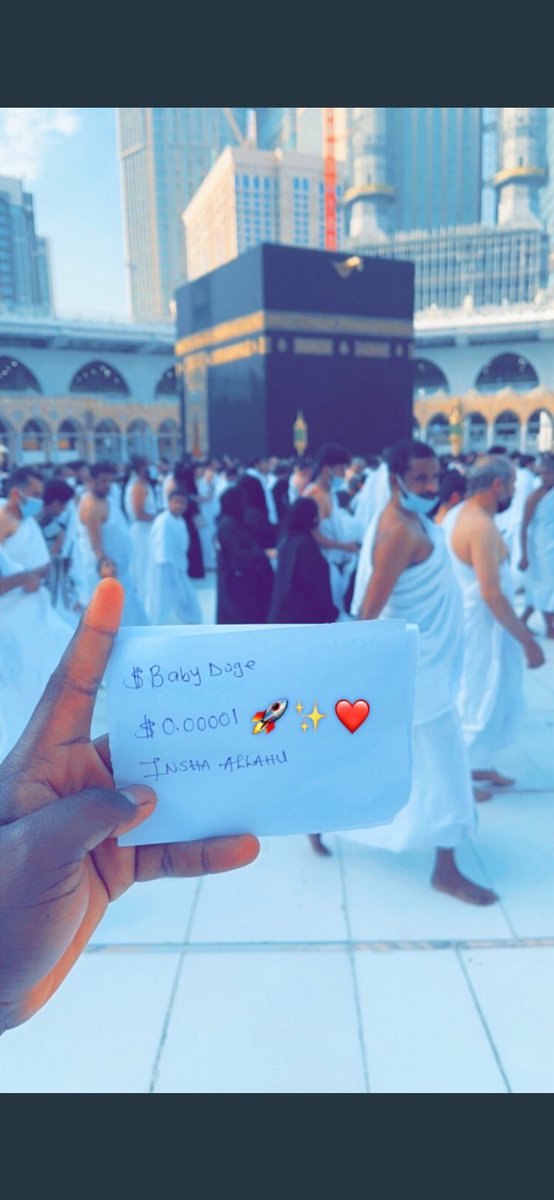 $Baby Doge
$0.00001 🚀✨❤️
INSHA-ALLAHU